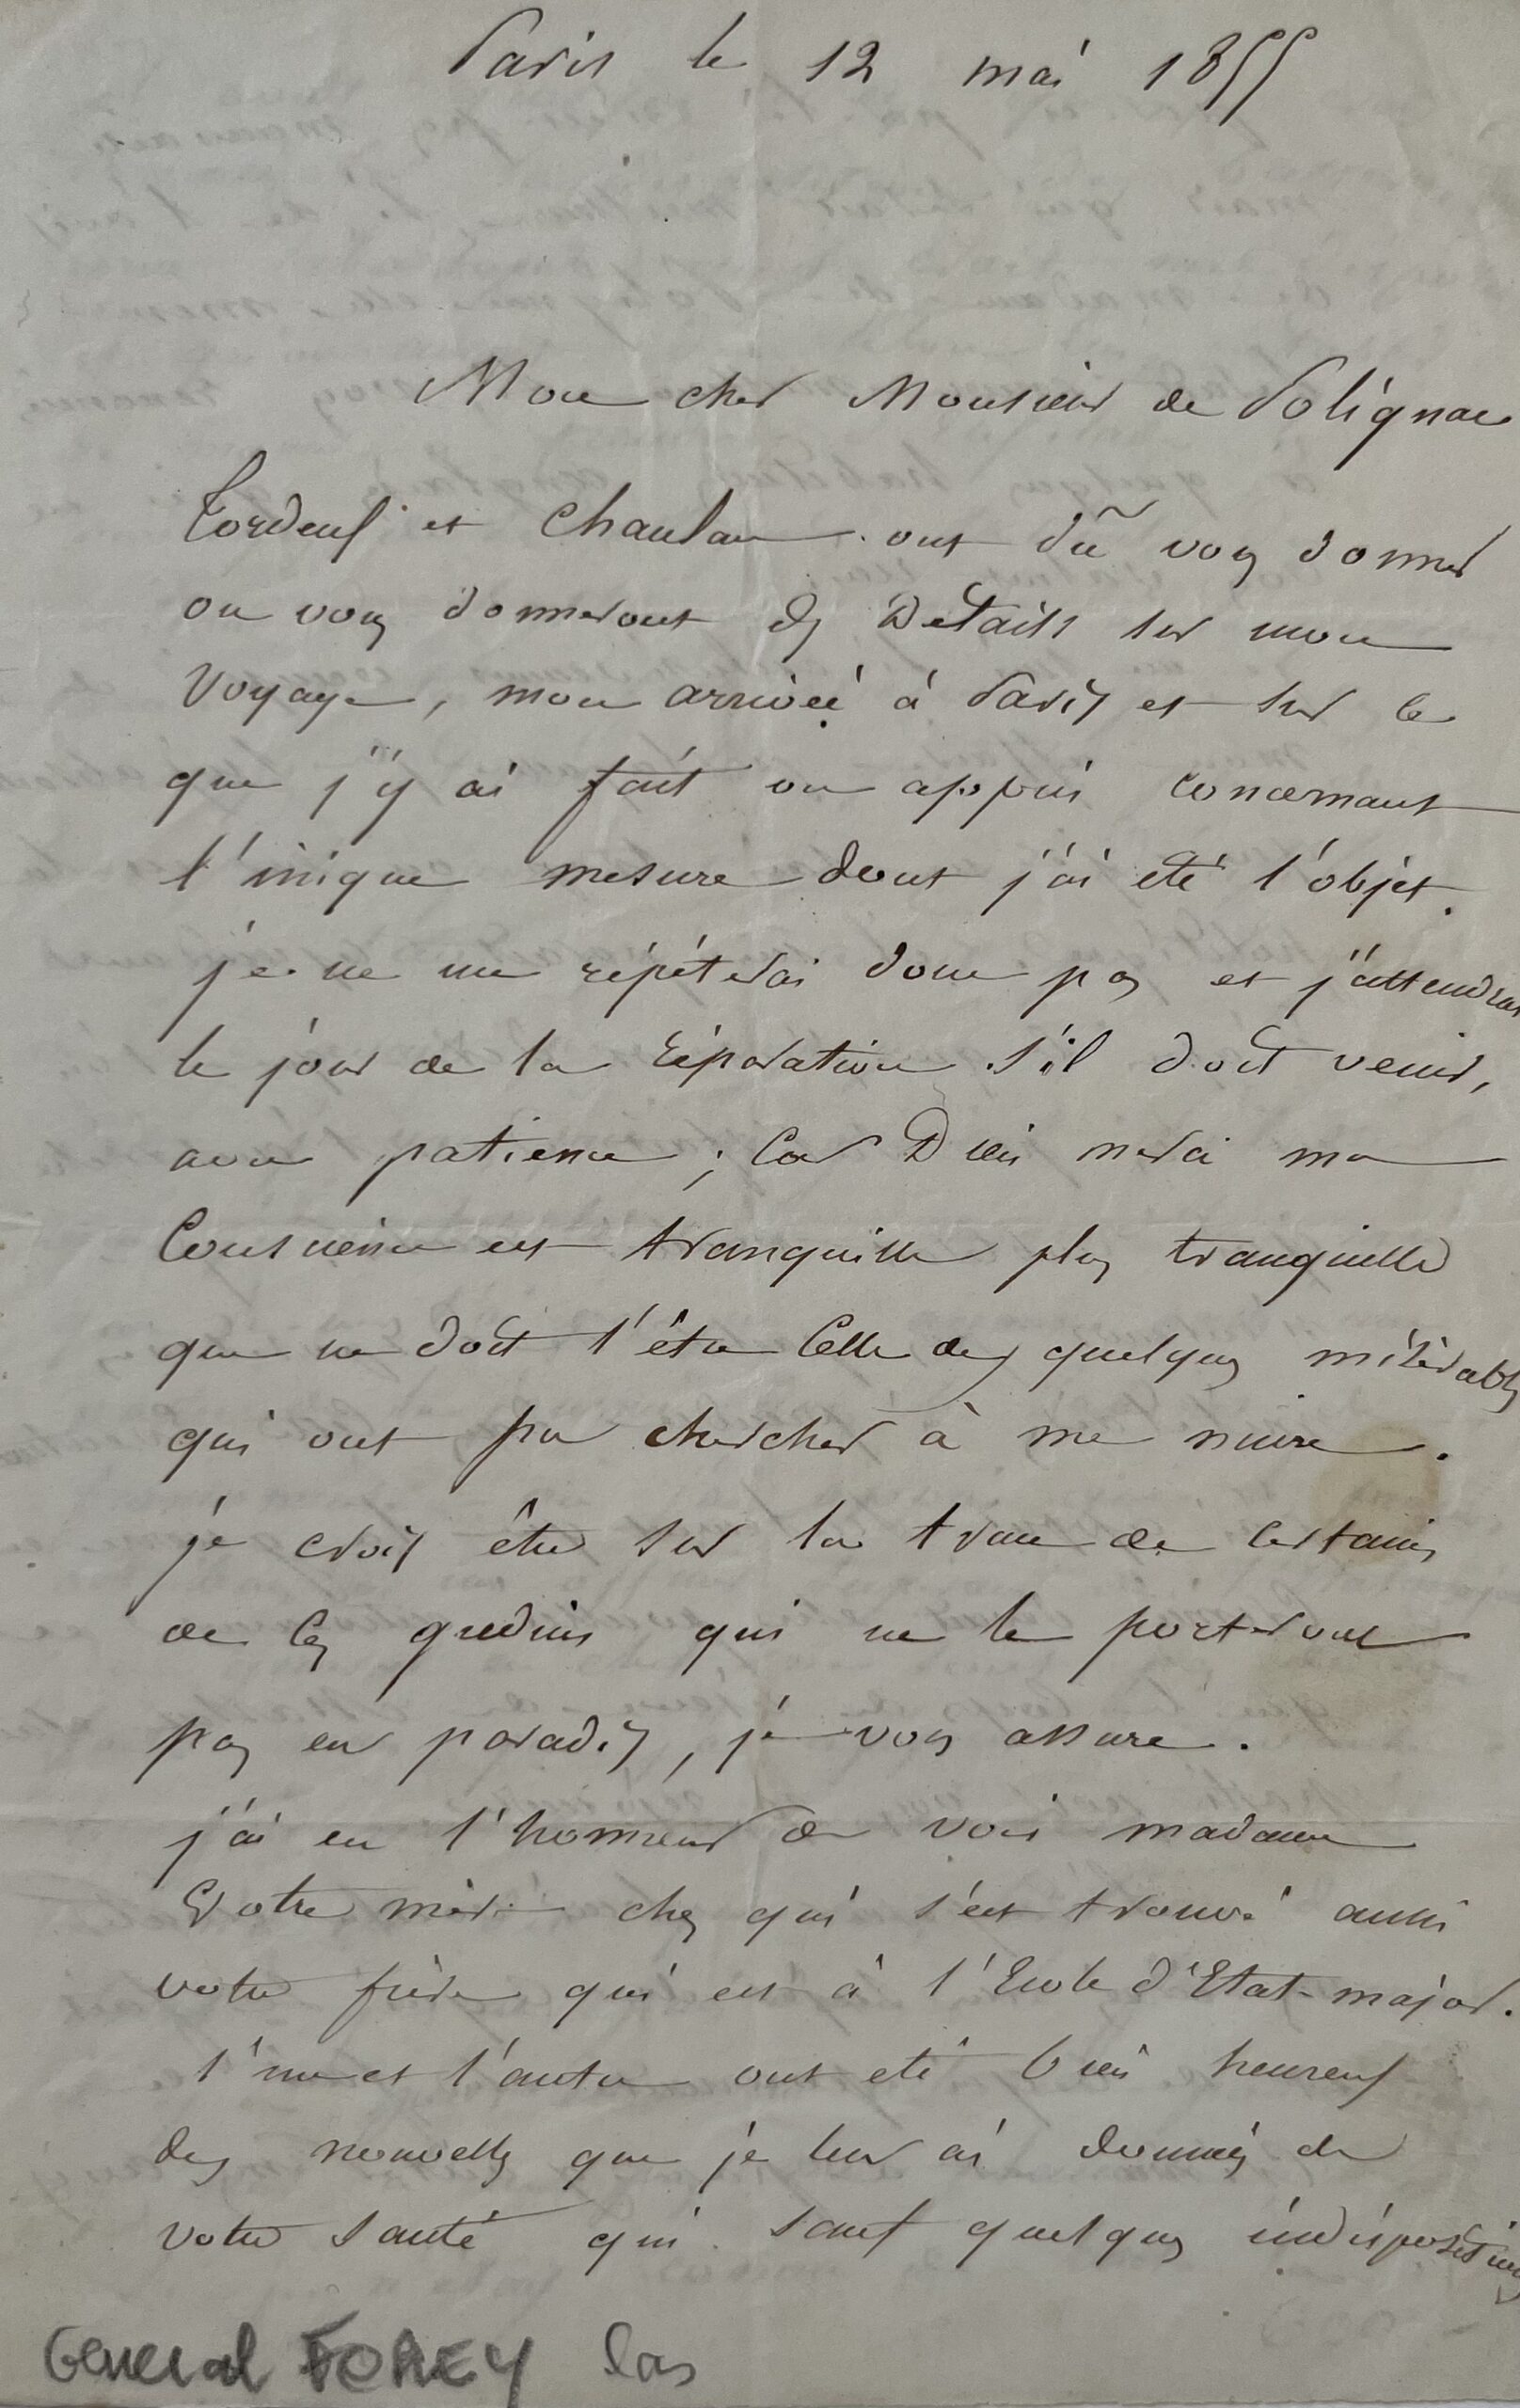 Paris le 12 mai 1855
Mon cher Monsieur de Polignac
Tordeux et Chaulan ont dû vous donner
ou vous donneront des Détails sur mon
voyage, mon arrivée à Paris et sur ce
que j'y ai fait ou appris concernant
l'inique mesure dont j'ai été l'objet.
je ne me répéterai donc pas et j'attendrai
le jour de la réparation s'il doit venir,
avec patience ; Car Dieu merci ma
Conscience est tranquille plus tranquille
que ne doit l'être Celle des quelques misérables
qui ont pu chercher à me nuire.
je crois être sur la trace de certains
de ces gredins qui ne le porteront
pas en paradis, je vous assure.
j'ai eu l'honneur de voir madame
Votre mère chez qui s'est trouvé aussi
votre frère qui est à l'Ecole d'Etat-major.
l'une et l'autre ont eté bien heureux
des nouvelles que je leur ai données de
votre santé qui sauf quelques indispositions
General FOREY las